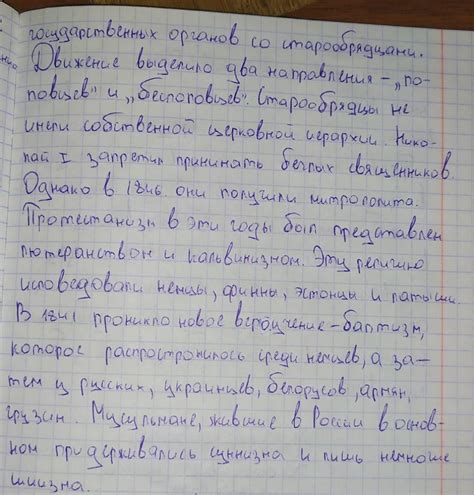 государственных органов со старообрядцами.
Движение выделило два направления - „по-
повцев" и „беспоповцев". Старообрядцы не
имели собственной церковной иерархии. Нико-
лай I запретил принимать беглых священников.
Однако в 1846 они получили митрополита.
Протестанизм в эти годы был представлен
лютеранством и кальвинизмом. Эту религию
исповедовали немцы, финны, эстонцы и латыши.
В 1841 проникло новое вероучение - баптизм,
которое распространилось среди немцев, а за-
тем и русских, украинцев, белорусов, армян,
грузин. Мусульмане, жившие в России в основ-
ном придерживались суннизма и лишь немногие
шиизма.